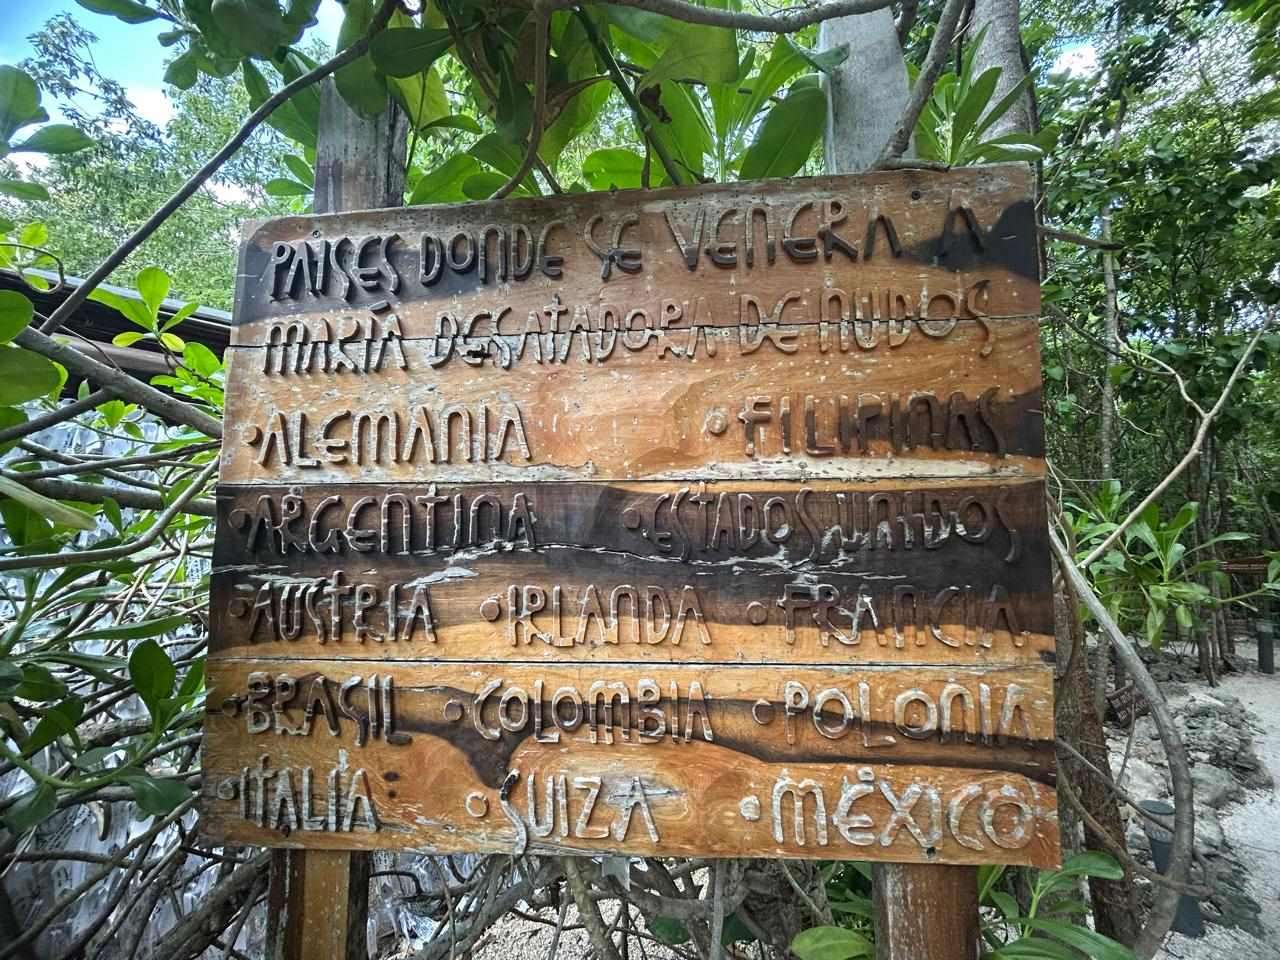 PAISES DONDE SE VENERA A
MARÍA DESATADORA DE NUDOS
• ALEMANIA • FILIPINAS
• ARGENTINA • ESTADOS UNIDOS
• AUSTRIA • IRLANDA • FRANCIA
• BRASIL • COLOMBIA • POLONIA
• ITALIA • SUIZA • MÉXICO